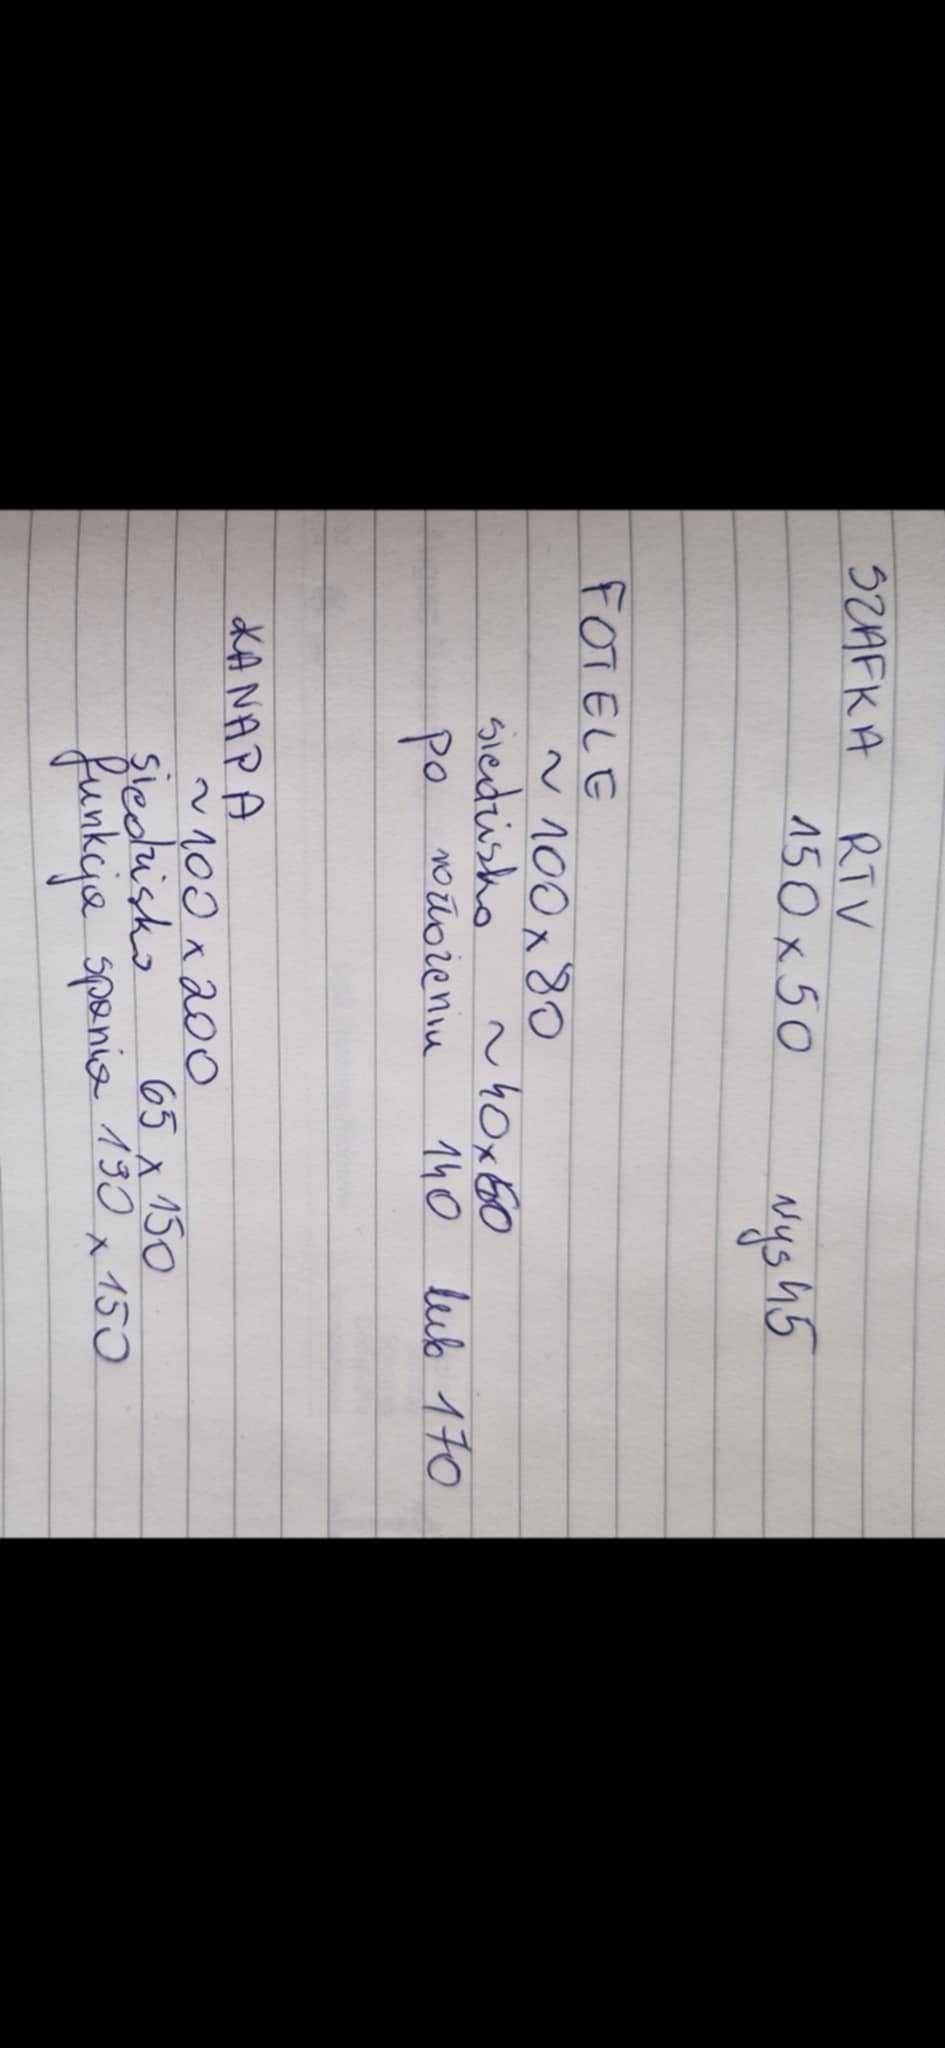 SZAFKA RTV
150 x 50 wys 45
FOTELE
~ 100 x 80
siedzisko ~ 40 x 60
po rozłożeniu 140 lub 170
KANAPA
~ 100 x 200
siedzisko 65 x 150
funkcja spania 190 x 150